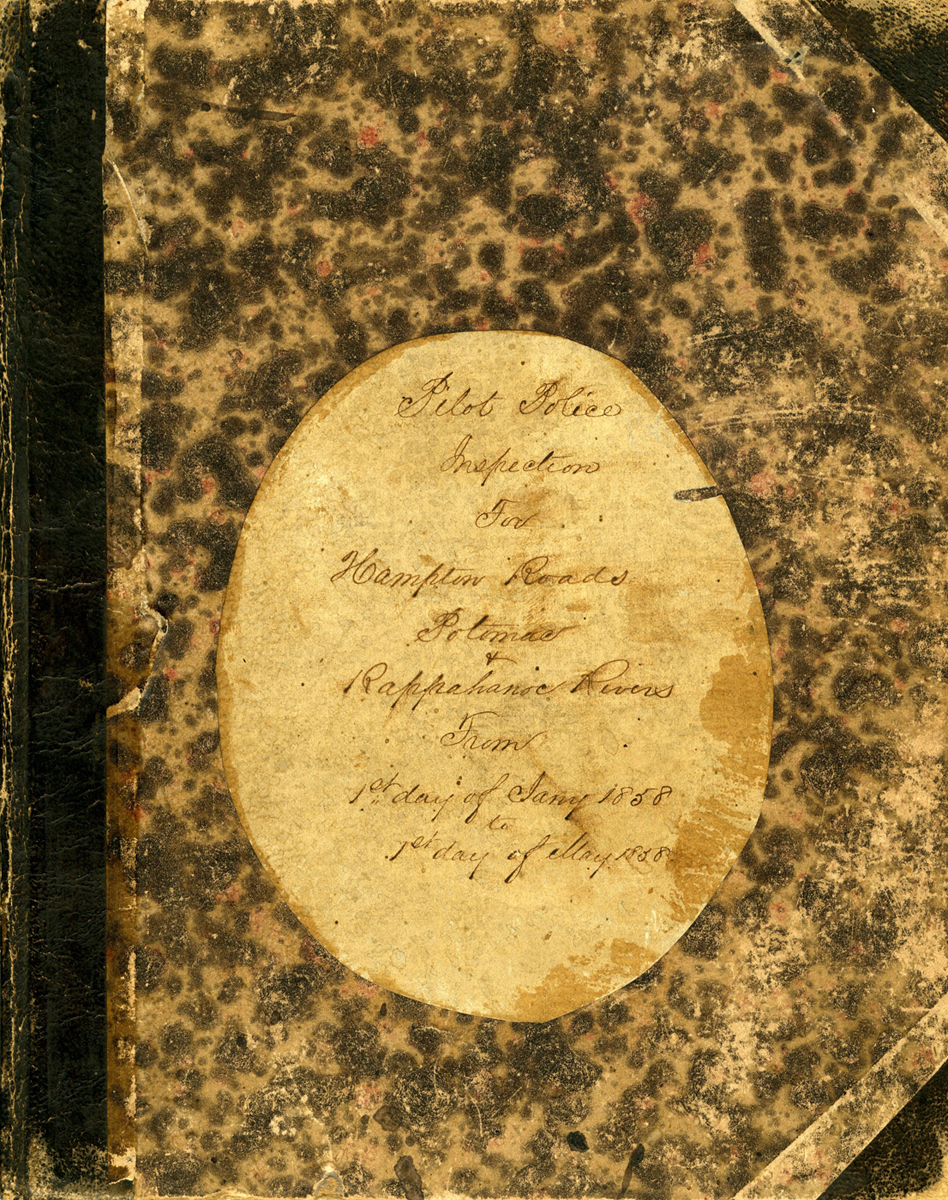 Pilot Police
Inspection
For
Hampton Roads
Potomac
&
Rappahanoc Rivers
From
1st day of Jany 1858
to
1st day of May 1858